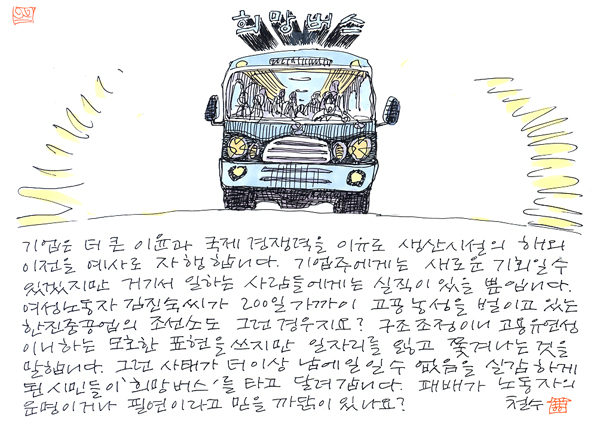 희망버스
기업은 더 큰 이윤과 국제 경쟁력을 이유로 생산시설의 해외
이전을 예사로 자행합니다. 기업주에게는 새로운 기회일 수
있겠지만 거기서 일하는 사람들에게는 실직이 있을 뿐입니다.
여성노동자 김진숙씨가 200일 가까이 고공농성을 벌이고 있는
한진중공업의 조선소도 그런 경우지요? 구조조정이니 고용유연성
이니 하는 모호한 표현을 쓰지만 일자리를 잃고 쫓겨나는 것을
말합니다. 그런 사태가 더이상 남에 일일 수 없음을 실감하게
된 시민들이 '희망버스'를 타고 달려갑니다. 패배가 노동자의
운명이거나 필연이라고 믿을 까닭이 있나요? 철수